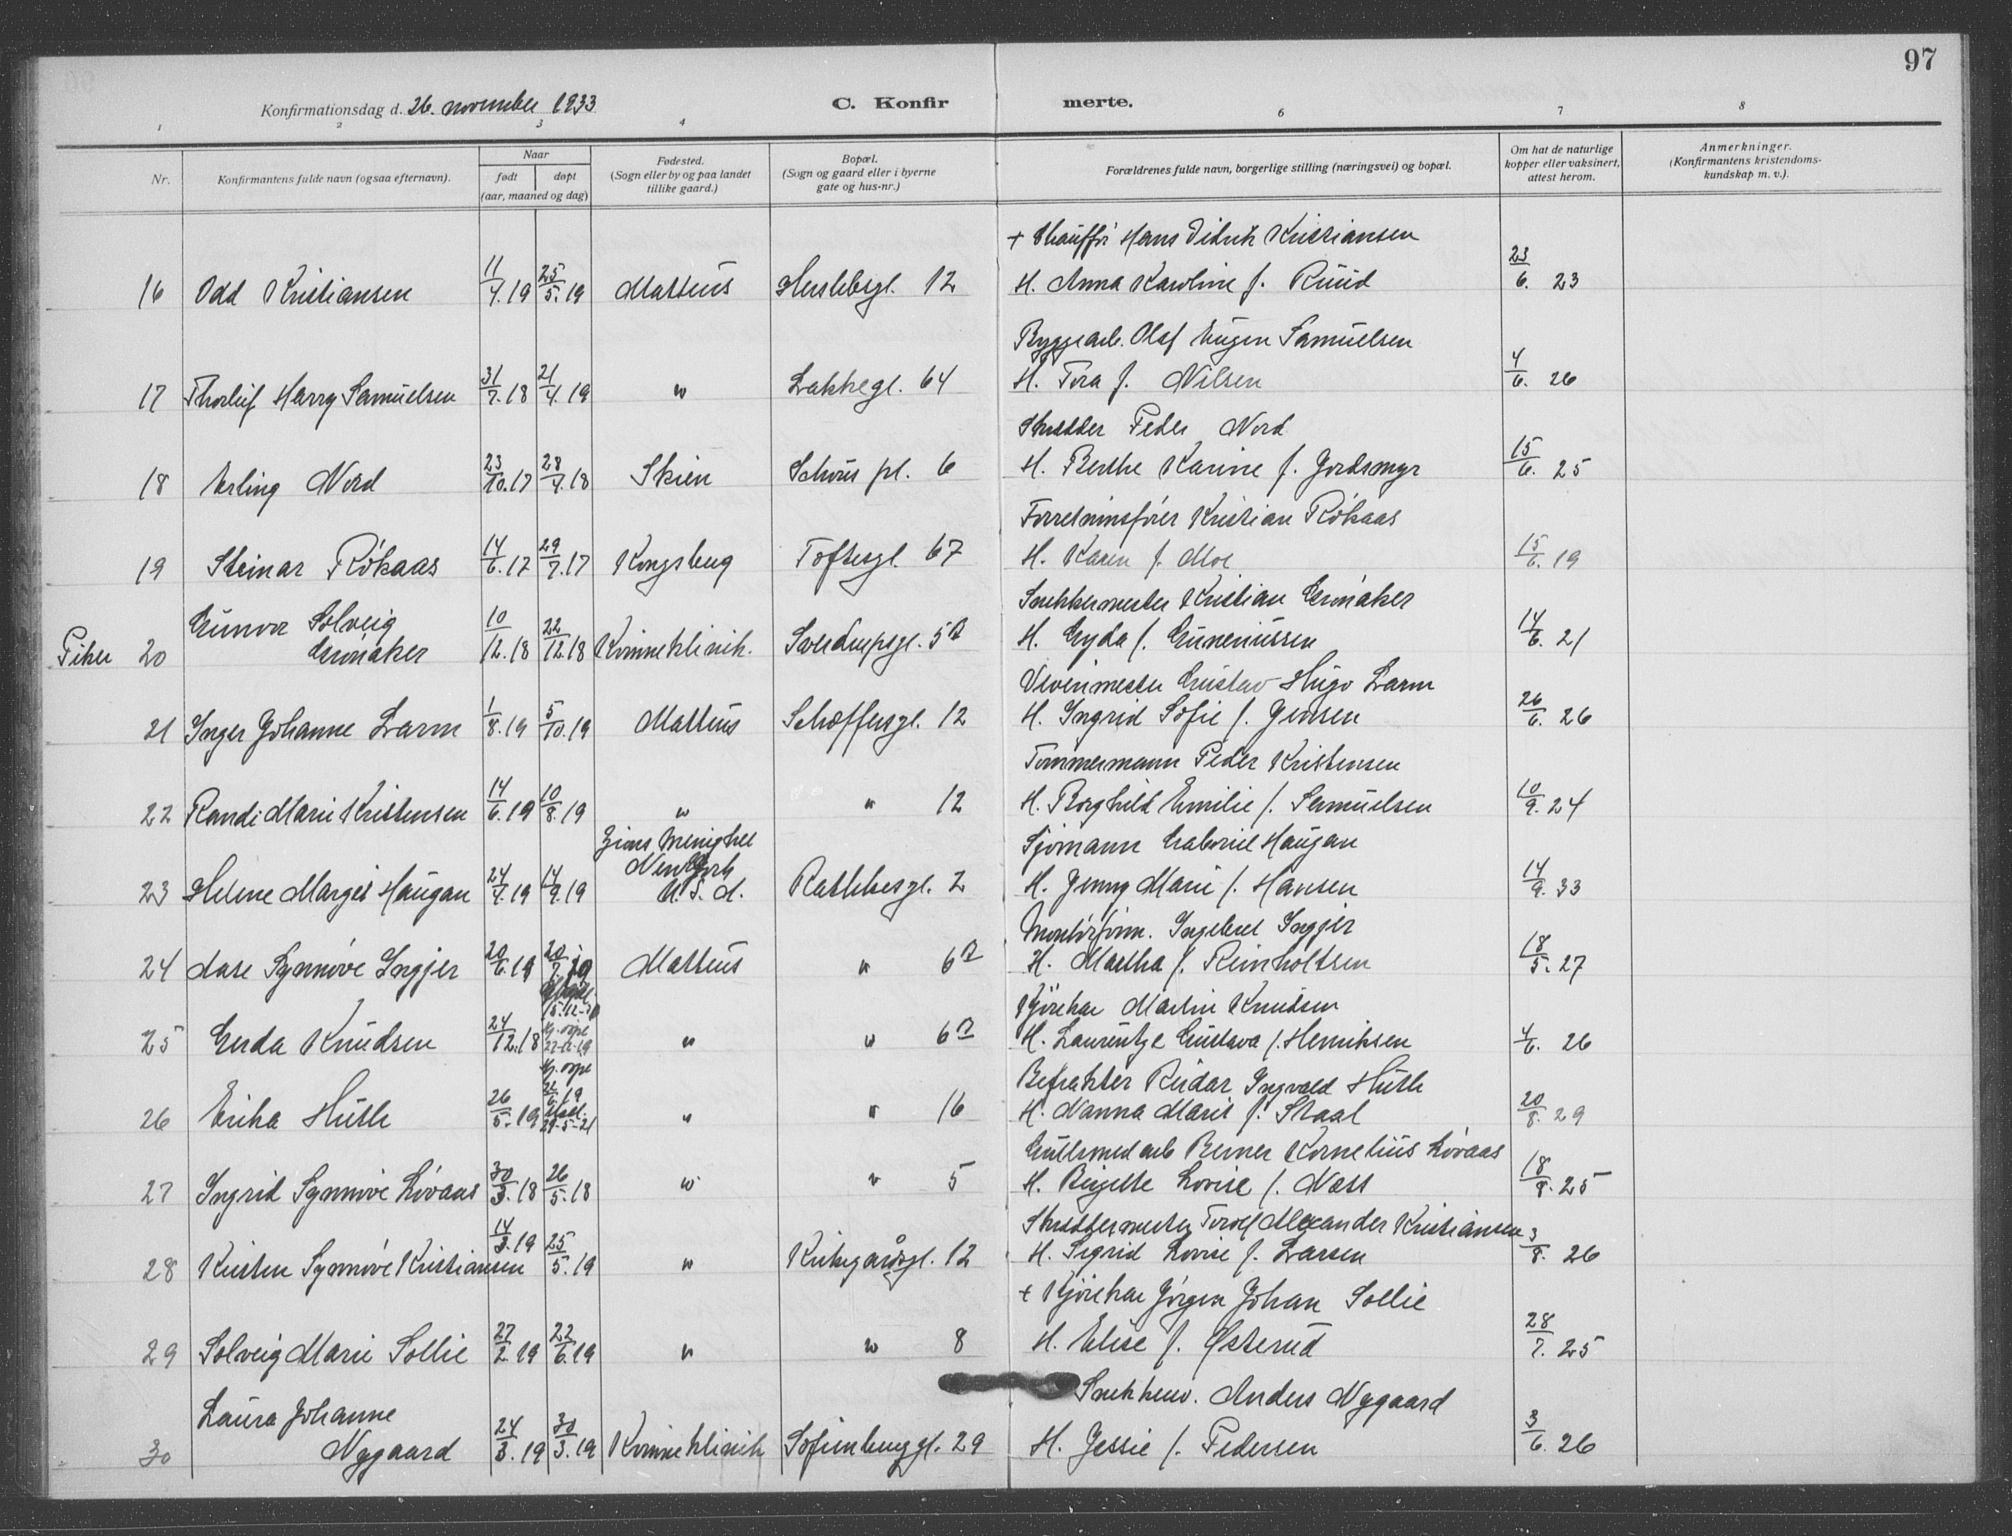 97
Konfirmationsdag d. 26. november 1933
C. Konfirmerte.
1 2 3 4 6 7 8
Nr.
Konfirmantens fulde navn (ogsaa efternavn).
Naar
født
døpt
(aar, maaned og dag)
Fødested.
(Sogn eller by og paa landet
tillike gaard.)
Bopæl.
(Sogn og gaard eller i byerne
gate og hus-nr.)
Forældrenes fulde navn, borgerlige stilling (næringsvei) og bopæl.
Om hat de naturlige
kopper eller vaksinert,
attest herom.
Anmerkninger.
(Konfirmantens kristendoms-
kundskap m. v.).
+ Chauffør Hans Didrik Kristiansen
16 Odd Kristiansen 11/4.19 25/5.19 Matteus Herslebsgt. 12 H. Anna Karoline f. Ruud 23/6. 23
Byggearb. Olaf Eugen Samuelsen
17 Thorleif Harry Samuelsen 31/7.18 21/4.19 " Lakkegt. 64 H. Tora f. Nilsen 4/6. 26
Skredder Peder Nord
18 Erling Nord 23/10.17 28/4.18 Skien Schous pl. 6 H. Berthe Karine f. Jordsmyr 15/6. 25
Forretningsfører Kristian Rökaas
19 Steinar Rökaas 14/6.17 29/7.17 Kongsberg Toftesgt. 67 H. Karen f. Moe 15/6. 19
Snekkermester Kristian Grönaker
Piker 20 Gunvor Solveig
Grönaker 10/12.18 22/12.18 Kvinneklinik. Sverdrupsgt. 5B H. Gyda f. Guneriussen 14/6. 21
Vevermester Gustav Hugo Larm
21 Inger Johanne Larm 1/8.19 5/10.19 Matteus Schæffersgt. 12 H. Ingrid Sofie f. Jensen 26/6. 26
Tømmermann Peder Kristensen
22 Randi Marie Kristensen 14/6.19 10/8.19 " " 12 H. Borghild Emilie f. Samuelsen 10/9. 24
Zions Menighet
New York
U.S.A.
Sjömann Gabriel Haugan
23 Helene Margit Haugan 24/7.19 14/9.19 Rathkesgt. 2 H. Jenny Marie f. Hansen 14/9. 33
Montörform. Ingebret Ingjer
24 Aase Synnöve Ingjer 20/6.19 20/7.19 Matteus " 6B H. Martha f. Reinholtsen 18/5. 27
Kjörekar Martin Knudsen
25 Gerda Knudsen 24/12.18 " " 6B H. Laurentze Gustava f. Henriksen 4/6. 26
Befrakter Reidar Ingvald Huth
26 Erika Huth 26/5.19 " " 16 H. Nanna Marie f. Staal 20/8. 29
Gullsmedarb Berner Kornelius Lövaas
27 Ingrid Synnöve Lövaas 30/3.18 26/5.18 " " 5 H. Birgitte Lovise f. Næss 18/8. 25
Skreddermester Torolf Alexander Kristiansen
28 Kirsten Synnöve Kristiansen 14/3.19 25/5.19 " Kirkegårdsgt. 12 H. Sigrid Lovise f. Larsen 3/8. 26
+ Kjörekar Jörgen Johan Sollie
29 Solveig Marie Sollie 27/2.19 22/6.19 " " 8 H. Elise f. Østerud 28/7. 25
Snekkersv. Anders Nygaard
30 Laura Johanne
Nygaard 24/3.19 30/3.19 Kvinneklinik Sofienberggt. 29 H. Jessie f. Pedersen 3/6. 26